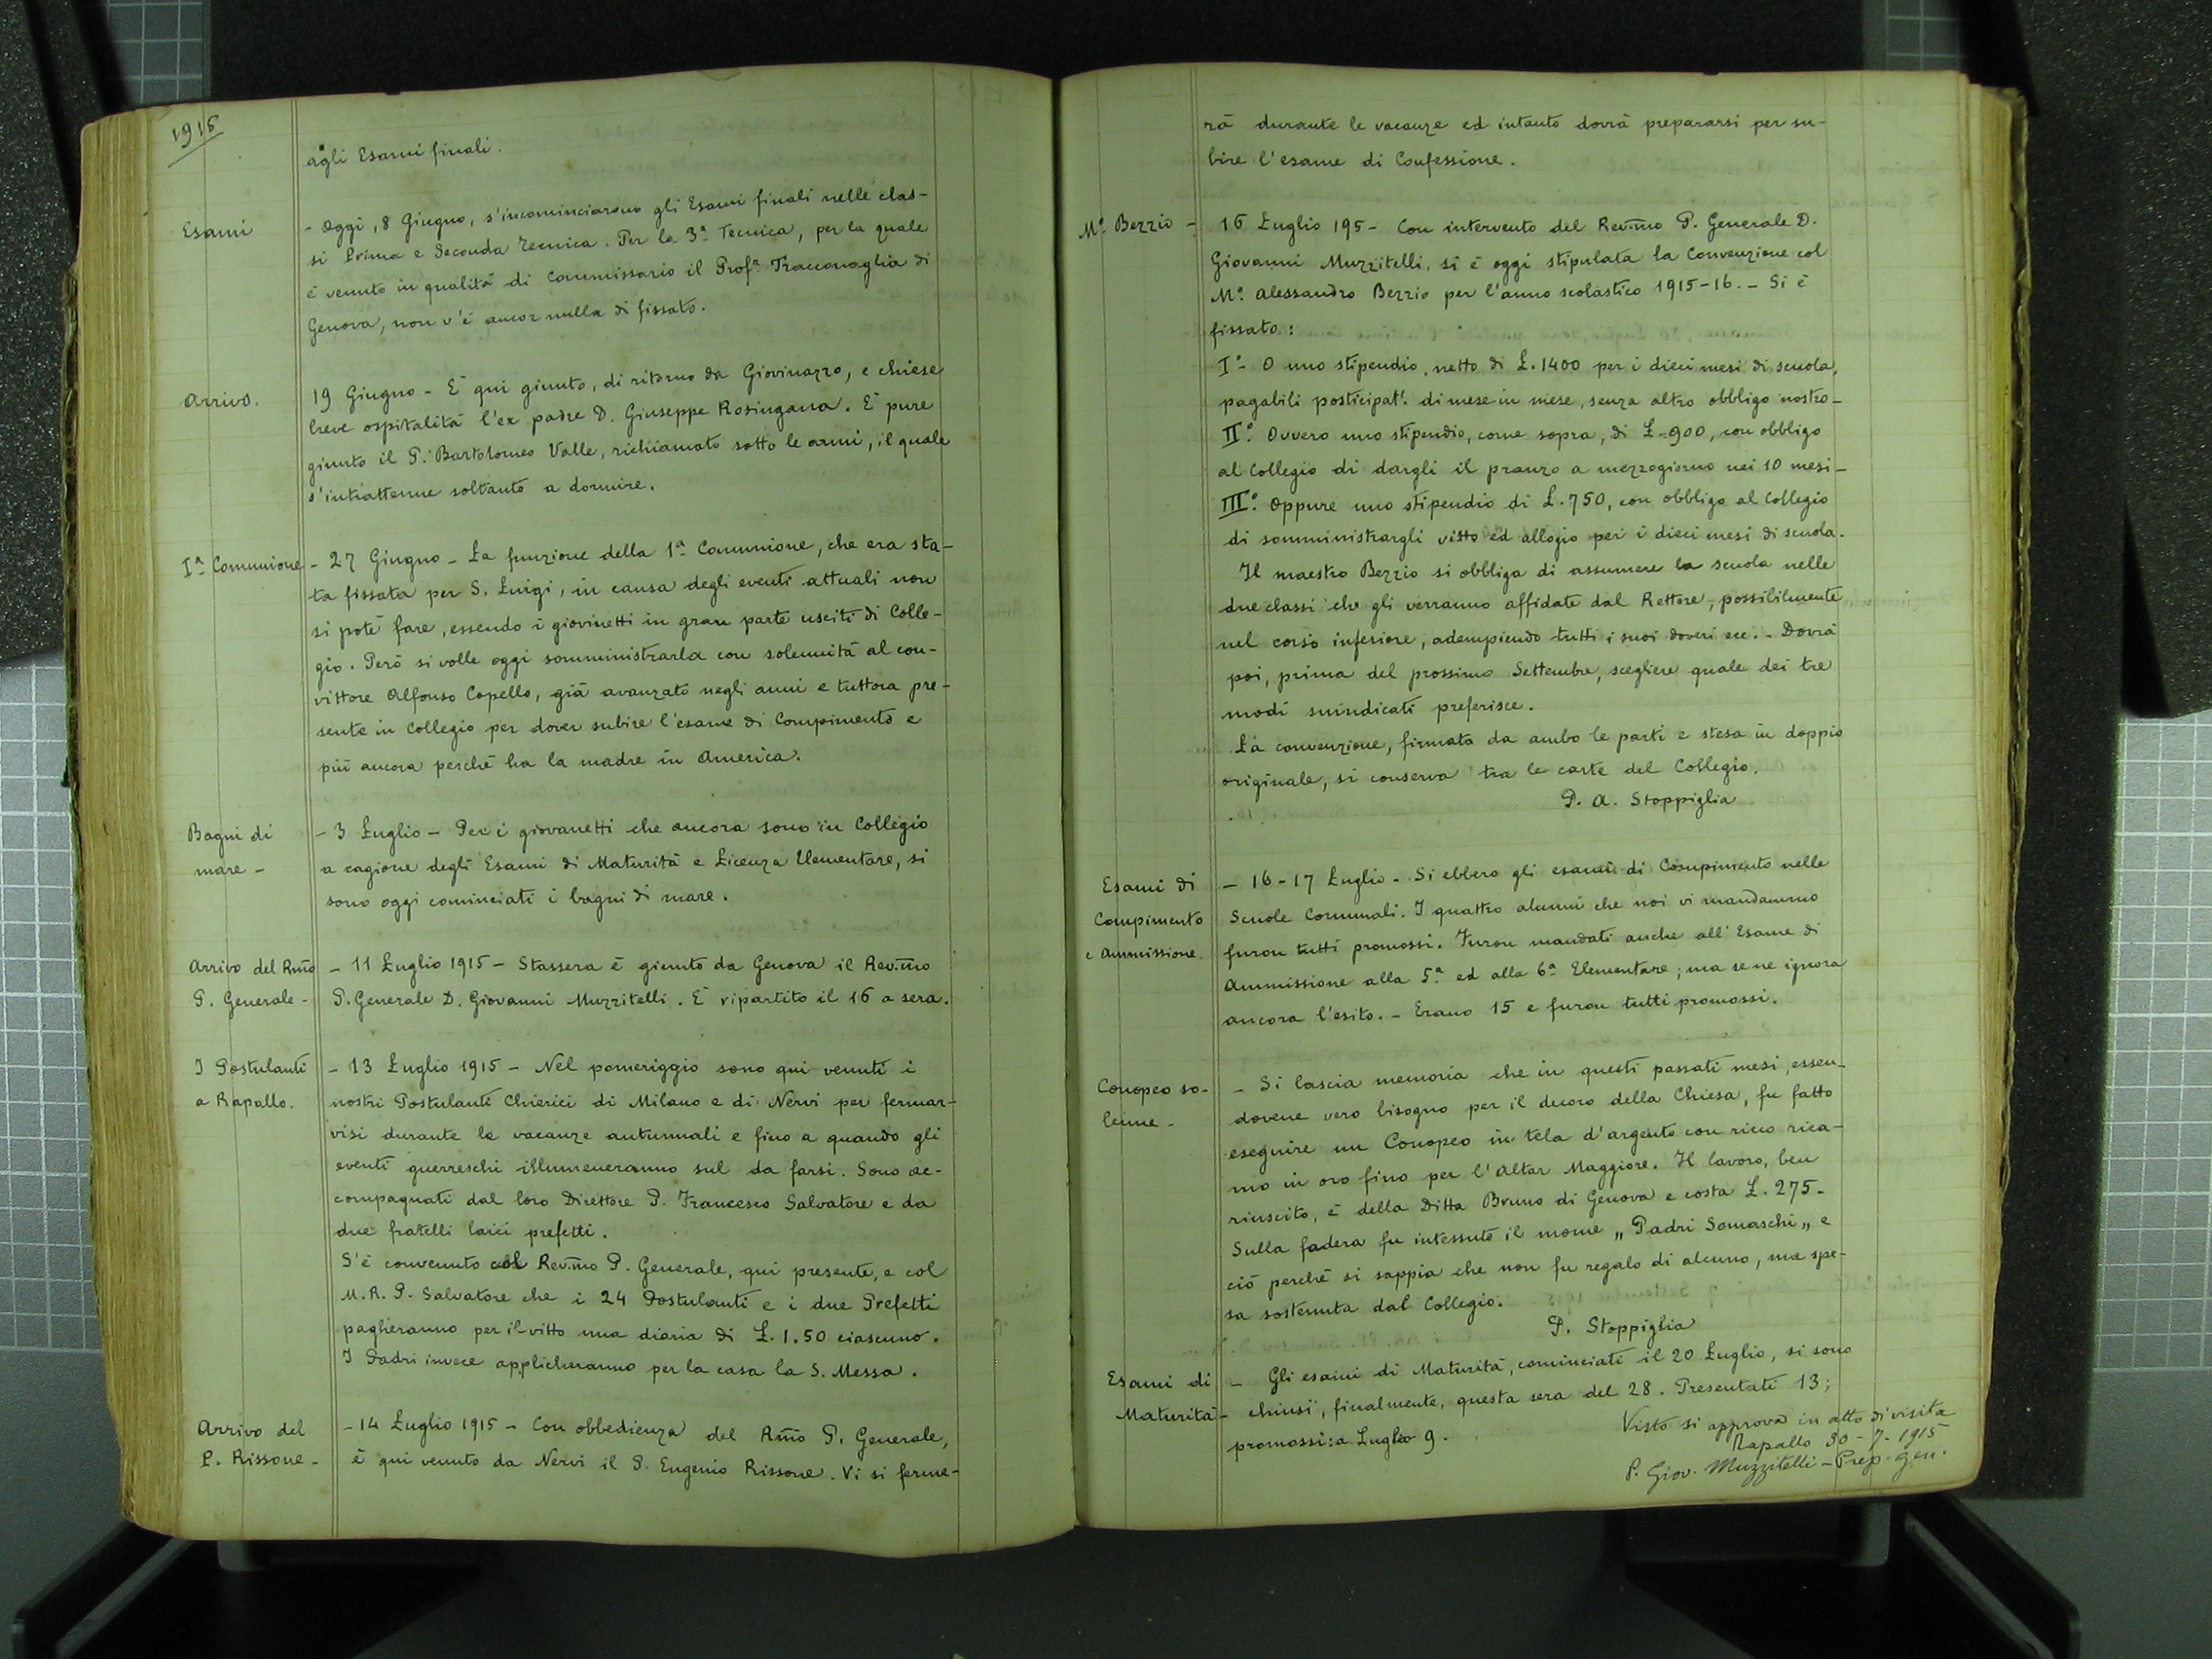 1915
agli Esami finali.
Esami - Oggi, 8 Giugno, s'incominciarono gli Esami finali nelle clas-
si Prima e Seconda Tecnica. Per la 3ª Tecnica, per la quale
è venuto in qualità di Commissario il Profr Tracconaglia di
Genova, non v'è ancor nulla di fissato.
Arrivo. 19 Giugno - È qui giunto, di ritorno da Giovinazzo, e chiese
breve ospitalità l'ex padre D. Giuseppe Rosingana. È pure
giunto il P. Bartolomeo Valle, richiamato sotto le armi, il quale
s'intrattenne soltanto a dormire.
Iª Comunione - 27 Giugno - La funzione della 1ª Comunione, che era sta-
ta fissata per S. Luigi, in causa degli eventi attuali non
si potè fare, essendo i giovinetti in gran parte usciti di Colle-
gio. Però si volle oggi somministrarla con solennità al con-
vittore Alfonso Capello, già avanzato negli anni e tuttora pre-
sente in Collegio per dover subire l'esame di Compimento e
più ancora perchè ha la madre in America.
Bagni di - 3 Luglio - Per i giovanetti che ancora sono in Collegio
mare - a cagione degli Esami di Maturità e Licenza Elementare, si
sono oggi cominciati i bagni di mare.
Arrivo del Rmo - 11 Luglio 1915 - Stassera è giunto da Genova il Rev.mo
P. Generale - P. Generale D. Giovanni Muzzitelli. È ripartito il 16 a sera.
I Postulanti - 13 Luglio 1915 - Nel pomeriggio sono qui venuti i
a Rapallo. nostri Postulanti Chierici di Milano e di Nervi per fermar-
visi durante le vacanze autunnali e fino a quando gli
eventi guerreschi illumineranno sul da farsi. Sono ac-
compagnati dal loro Direttore P. Francesco Salvatore e da
due fratelli laici prefetti.
S'è convenuto col Rev.mo P. Generale, qui presente, e col
M. R. P. Salvatore che i 24 Postulanti e i due Prefetti
pagheranno per il vitto una diaria di L. 1.50 ciascuno.
I Padri invece applicheranno per la casa la S. Messa.
Arrivo del - 14 Luglio 1915 - Con obbedienza del Rmo P. Generale,
P. Rissone - è qui venuto da Nervi il P. Eugenio Rissone. Vi si ferme-
rà durante le vacanze ed intanto dovrà prepararsi per su-
bire l'esame di Confessione.
Mº Bezzio - 16 Luglio 195 - Con intervento del Rev.mo P. Generale D.
Giovanni Muzzitelli, si è oggi stipulata la Convenzione col
Mº Alessandro Bezzio per l'anno scolastico 1915-16. - Si è
fissato:
Iº - O uno stipendio, netto di L. 1400 per i dieci mesi di scuola,
pagabili posticipat! di mese in mese, senza altro obbligo nostro -
IIº Ovvero uno stipendio, come sopra, di L. 900, con obbligo
al Collegio di dargli il pranzo a mezzogiorno nei 10 mesi -
IIIº Oppure uno stipendio di L. 750, con obbligo al Collegio
di somministrargli vitto ed allogio per i dieci mesi di scuola.
Il maestro Bezzio si obbliga di assumere la scuola nelle
due classi che gli verranno affidate dal Rettore, possibilmente
nel corso inferiore, adempiendo tutti i suoi doveri ecc. - Dovrà
poi, prima del prossimo Settembre, scegliere quale dei tre
modi suindicati preferisce.
La convenzione, firmata da ambo le parti e stesa in doppio
originale, si conserva tra le carte del Collegio.
P. A. Stoppiglia
Esami di - 16-17 Luglio - Si ebbero gli esami di Compimento nelle
Compimento Scuole Comunali. I quattro alunni che noi vi mandammo
e Ammissione. furon tutti promossi. Furon mandati anche all'Esame di
Ammissione alla 5ª ed alla 6ª Elementare; ma se ne ignora
ancora l'esito. - Erano 15 e furon tutti promossi.
Conopeo so- - Si lascia memoria che in questi passati mesi, essen-
lenne - dovene vero bisogno per il decoro della Chiesa, fu fatto
eseguire un Conopeo in tela d'argento con ricco rica-
mo in oro fino per l'Altar Maggiore. Il lavoro, ben
riuscito, è della Ditta Bruno di Genova e costa L. 275 -
Sulla fodera fu intessuto il nome „Padri Somaschi„ e
ciò perchè si sappia che non fu regalo di alcuno, ma spe-
sa sostenuta dal Collegio.
P. Stoppiglia
Esami di - Gli esami di Maturità, cominciati il 20 Luglio, si sono
Maturità - chiusi, finalmente, questa sera del 28. Presentati 13;
promossi: a Luglio 9.
Visto si approva in atto di visita
Rapallo 30-7-1915
P. Giov. Muzzitelli - Prep. Gen.